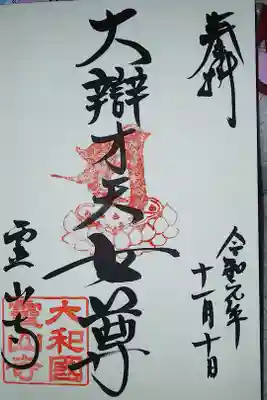 奉拝
令和元年
十一月十日
大辯才天女尊
霊山寺
大和國
靈山寺